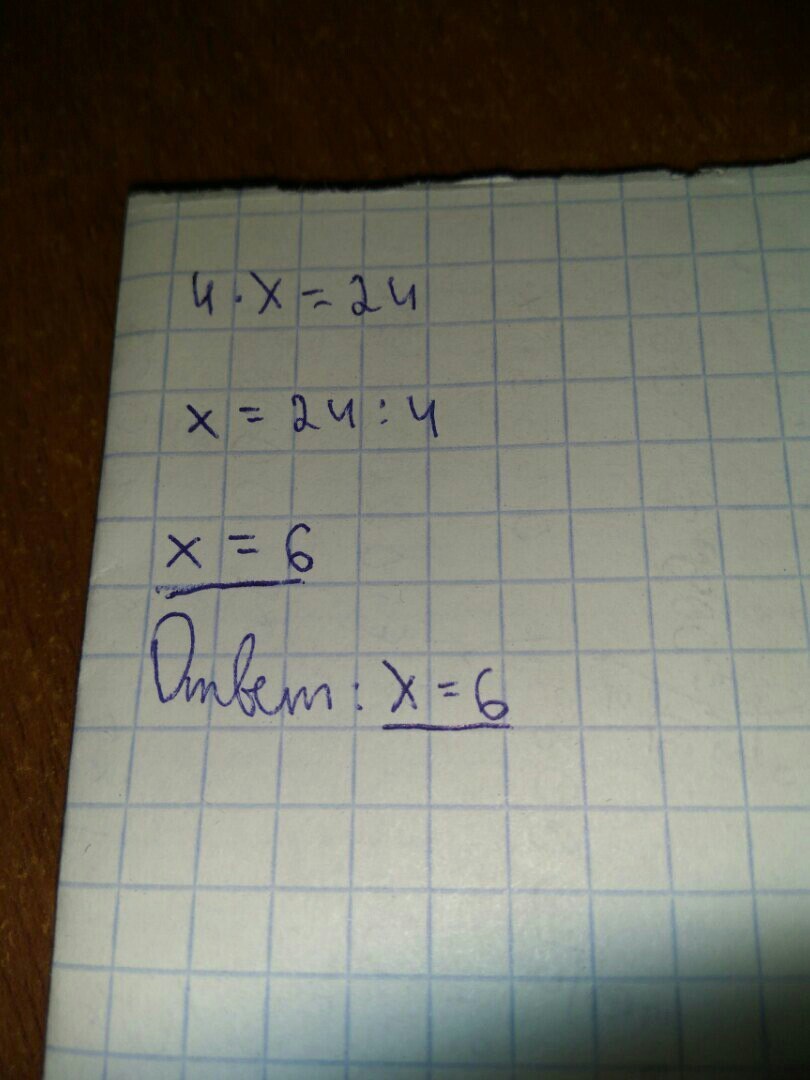 4 · x = 24
x = 24 : 4
x = 6
Ответ: x = 6